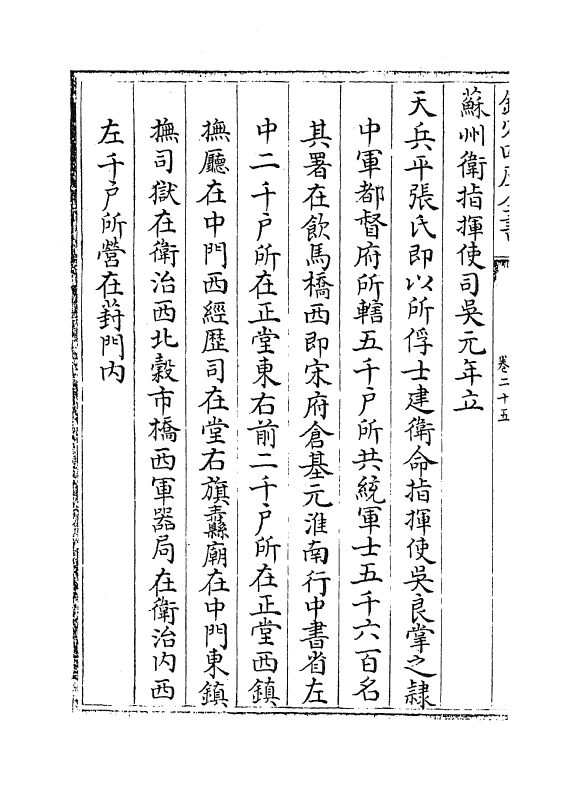 欽定四庫全書
卷二十五
蘇州衛指揮使司吳元年立
天兵平張氏即以所俘士建衛命指揮使吳良掌之隸
中軍都督府所轄五千户所共統軍士五千六百名
其署在飲馬橋西即宋府倉基元淮南行中書省左
中二千户所在正堂東右前二千户所在正堂西鎮
撫廳在中門西經歴司在堂右旗纛廟在中門東鎮
撫司獄在衛治西北榖市橋西軍器局在衛治内西
左千户所營在葑門内